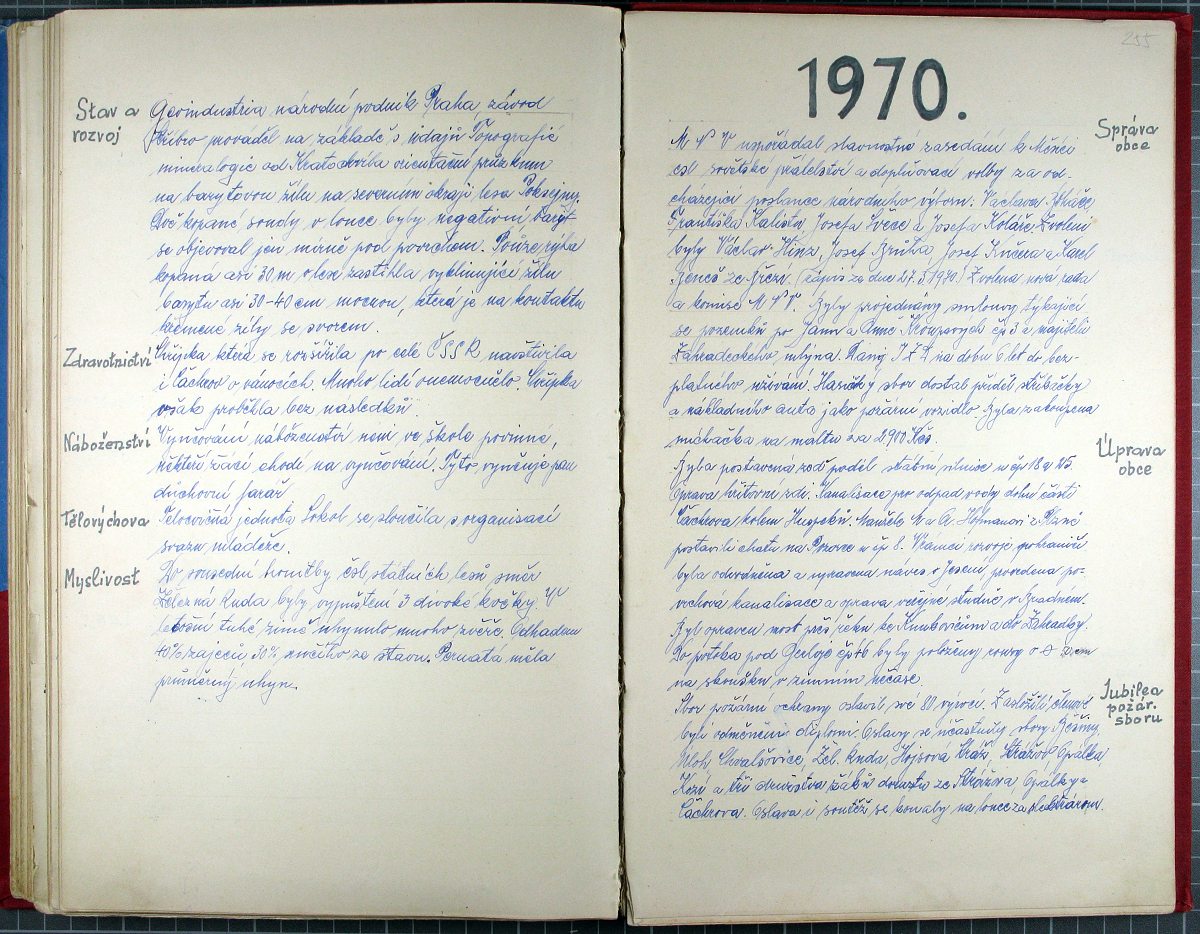 Stav a
rozvoj
Geoindustria národní podnik Praha závod
Stříbro prováděl na základě s údajů Topografic
mineralogic od Kratochvíla orientační průzkum
na barytovou žílu na severním okraji lesa
Dvě kopané sondy v louce byly negativní baryt
se objevoval jen mírně pod povrchem. Pouze rýha
kopaná asi 30 m v lese zastihla vykliňující žílu
barytu asi 30-40 cm mocnou, která je na kontaktu
křemené žíly se svorem.
Zdravotnictví
Chřipka která se rozšířila po celé ČSSR navštívila
i Čáchrov o vánocích. Mnoho lidí onemocnělo. Chřipka
však proběhla bez následků.
Náboženství
Vyučování náboženství není ve škole povinné,
někteří žáci chodí na vyučování. Tyto vyučuje pan
duchovní farář
Tělovýchova
Tělocvičná jednota Sokol se sloučila s organisací
svazu mládeže.
Myslivost
Do sousední honitby čsl. státních lesů směr
Železná Ruda byly vypuštění 3 divoké kočky. V
letošní tuhé zimě uhynulo mnoho zvěře. Odhadem
40% zajeců 30% srnčího ze stavu. Pernatá měla
průměrný uhyn.
255
1970.
Správa
obce
M N V uspořádal slavnostní zasedání k Měsíci
čsl sovětské přátelství a doplňovací volby za od-
cházející poslance národního výboru: Václava
Františka Kalista, Josefa Ševce a Josefa Koláře. Zvoleni
byly Václav Hinz, Josef Brůha, Josef Kučera a Karel
Beneš ze Březí. (Zápis ze dne 27.5.1970.) Zvolena nová rada
a komise M N V. Byly projednány smlouvy týkající
se pozemků po Janu a Anně Krouparových čp 3 a majiteli
Zahradeckého mlýna. Raný JZD na dobu 6 let do bez-
platného užívání. Hasičký sbor dostal příděl stříkačky
a nákladního auta jako požární vozidlo. Byla zakoupena
míchačka na maltu za 2.900 Kčs.
Úprava
obce
Byla postavena zeď podél státní silnice u čp 18 a 25.
Oprava hřbitovní zdi. Kanalisace pro odpad. vody dolní části
Čáchrova kolem. Manželé M a A. Hofmanovi z Plzně
postavili chatu na u čp 8. Vrámci rozvoje pohraničí
byla odvodněna a upravena náves v Jesení, provedena po-
vrchová kanalisace a oprava veřejné studně v Bradném.
Byl opraven most přes řeku ke Kunkovicům a do Zahrádky.
Do potoka pod čp 46 byly položeny roury o
na zkoušku v zimním nečase.
Jubilea
požár.
sboru
Sbor požární ochrany oslavil své 80 výročí. Zasloužilí členové
byli odměněni diplomi. Oslavy se účastnily sbory Běšiny,
Úloh, Chvalšovice, Žel. Ruda, Hojsova Stráž, Strážov, Opálka
Kozí a tři družstva žáků dorostu ze Strážova, Opálky a
Čáchrova. Oslava i soutěž se konaly na louce za